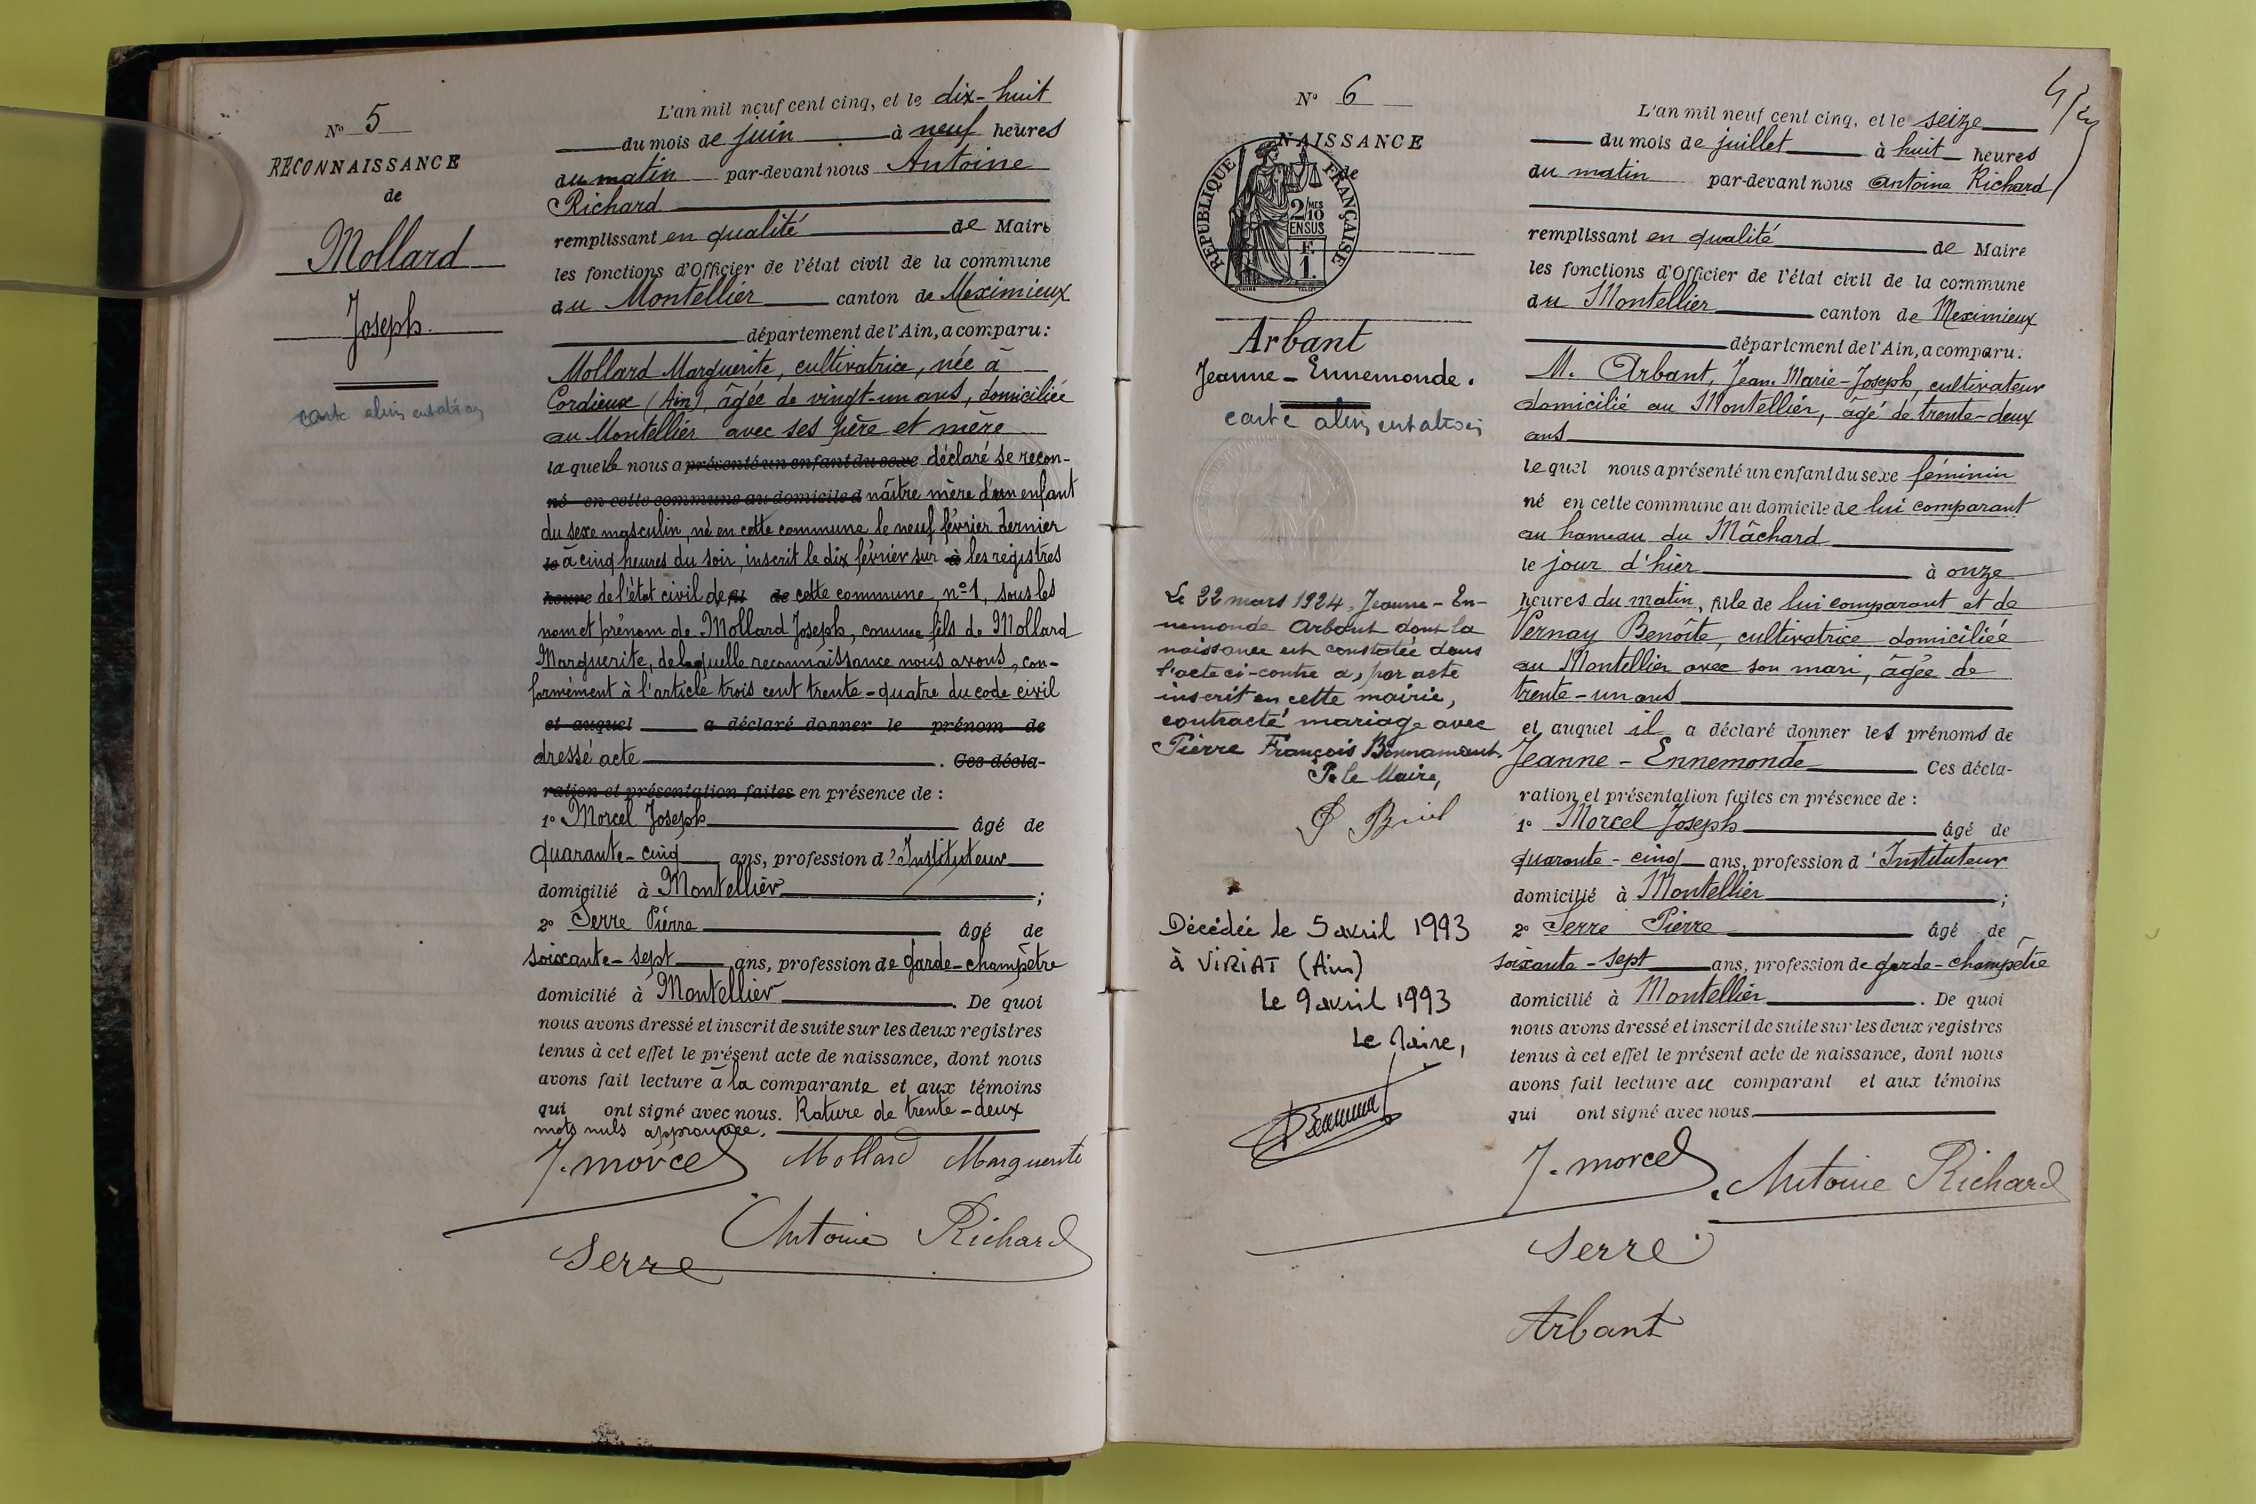 N° 5
RECONNAISSANCE
de
Mollard
Joseph
carte alimentation
L'an mil neuf cent cinq, et le dix-huit
du mois de juin à neuf heures
du matin par-devant nous Antoine
Richard
remplissant en qualité de Maire
les fonctions d'Officier de l'état civil de la commune
du Montellier canton de Meximieux
département de l'Ain, a comparu:
Mollard Marguerite, cultivatrice, née à
Cordieux (Ain), âgée de vingt-un ans, domiciliée
au Montellier avec ses père et mère
laquelle nous a présenté un enfant du sexe déclaré se recon-
né en cette commune au domicile d naître mère d'un enfant
du sexe masculin, né en cette commune le neuf février dernier
le à cinq heures du soir, inscrit le dix février sur à les registres
heure de l'état civil de et de cette commune, n° 1, sous les
nom et prénom de Mollard Joseph, comme fils de Mollard
Marguerite, de laquelle reconnaissance nous avons, con-
formément à l'article trois cent trente-quatre du code civil
et auquel a déclaré donner le prénom de
dressé acte . Ces décla-
ration et présentation faites en présence de :
1° Morcel Joseph âgé de
quarante-cinq ans, profession d'Instituteur
domicilié à Montellier ;
2° Serre Pierre âgé de
soixante-sept ans, profession de garde-champêtre
domicilié à Montellier . De quoi
nous avons dressé et inscrit de suite sur les deux registres
tenus à cet effet le présent acte de naissance, dont nous
avons fait lecture à la comparante et aux témoins
qui ont signé avec nous. Rature de trente-deux
mots nuls approuvée.
J. morcel Mollard Marguerite
Antoine Richard
Serre
N° 6
NAISSANCE
de
REPUBLIQUE FRANÇAISE
2/10 MES
EN SUS
F.
1.
Arbant
Jeanne-Ennemonde.
carte alimentation
Le 22 mars 1924, Jeanne-En-
nemonde Arbant dont la
naissance est constatée dans
l'acte ci-contre a, par acte
inscrit en cette mairie,
contracté mariage avec
Pierre François Bonnamant
P. le Maire,
Décédée le 5 avril 1993
à VIRIAT (Ain)
Le 9 avril 1993
Le Maire,
L'an mil neuf cent cinq, et le seize
du mois de juillet à huit heures
du matin par-devant nous Antoine Richard
remplissant en qualité de Maire
les fonctions d'Officier de l'état civil de la commune
du Montellier canton de Meximieux
département de l'Ain, a comparu:
M. Arbant, Jean-Marie-Joseph, cultivateur
domicilié au Montellier, âgé de trente-deux
ans
lequel nous a présenté un enfant du sexe féminin
né en cette commune au domicile de lui comparant
au hameau du Mâchard
le jour d'hier à onze
heures du matin, fille de lui comparant et de
Vernay Benoîte, cultivatrice domiciliée
au Montellier avec son mari, âgée de
trente-un ans
et auquel il a déclaré donner les prénoms de
Jeanne-Ennemonde . Ces décla-
ration et présentation faites en présence de :
1° Morcel Joseph âgé de
quarante-cinq ans, profession d'Instituteur
domicilié à Montellier ;
2° Serre Pierre âgé de
soixante-sept ans, profession de garde-champêtre
domicilié à Montellier . De quoi
nous avons dressé et inscrit de suite sur les deux registres
tenus à cet effet le présent acte de naissance, dont nous
avons fait lecture au comparant et aux témoins
qui ont signé avec nous.
J. morcel Antoine Richard
Serre
Arbant